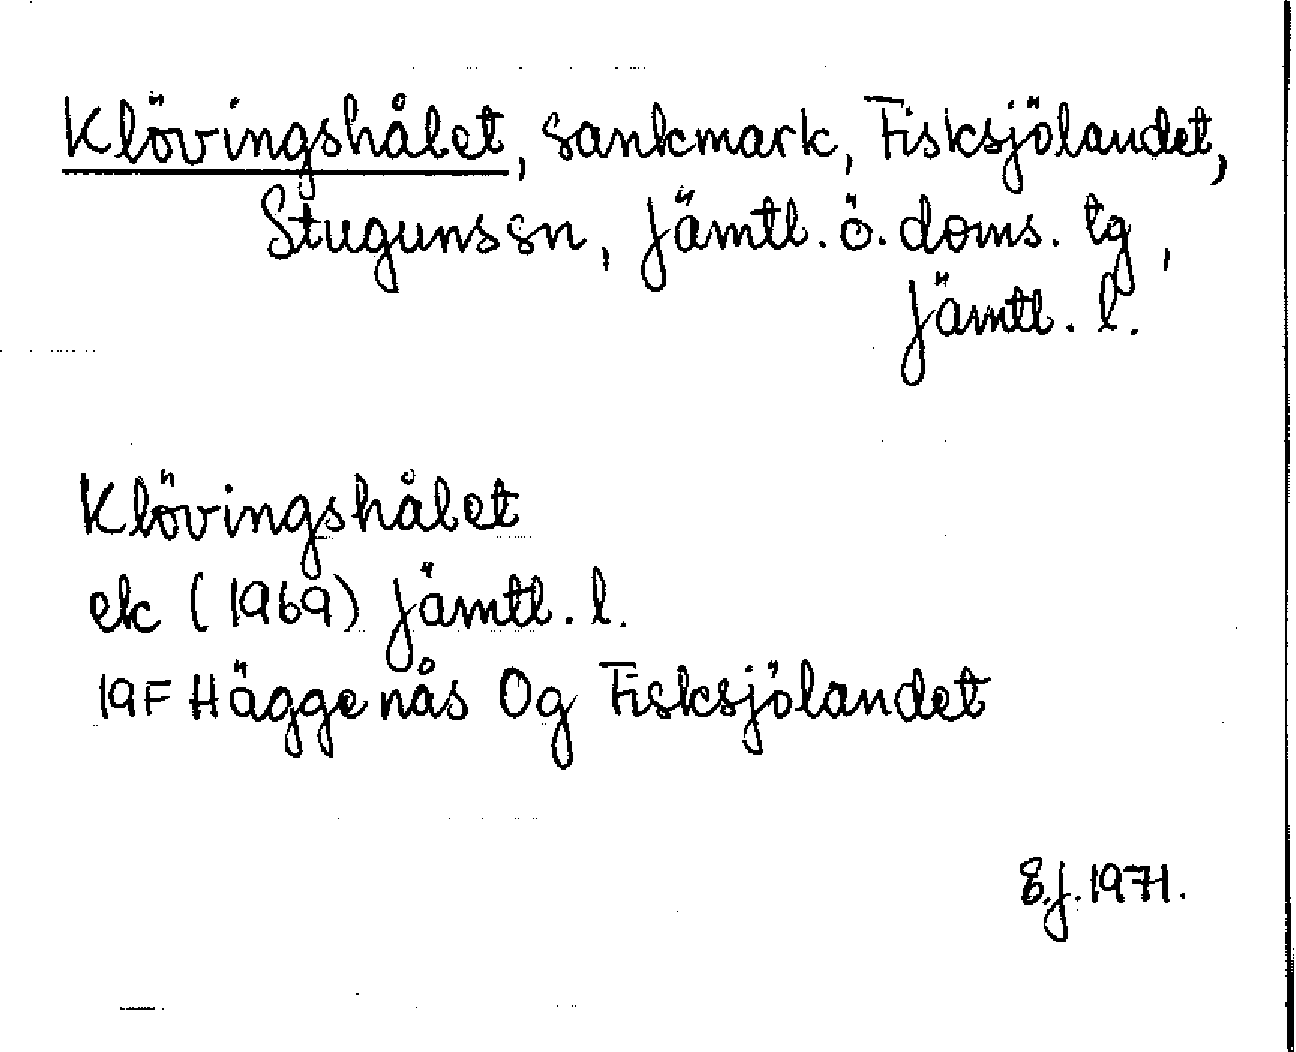 Klövingshålet, sankmark, Fisksjölandet,
Stugunssn, Jämtl. ö. doms. tg,
Jämtl. l.
Klövingshålet
ek (1969) Jämtl. l.
19F Häggenås 0g Fisksjölandet
E.J. 1971.